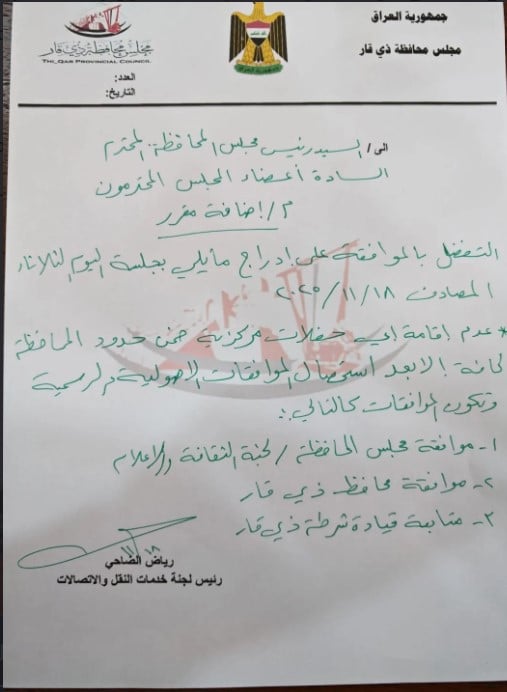 جمهورية العراق
مجلس محافظة ذي قار
مجلس محافظة ذي قار
THI_QAR PROVINCIAL COUNCIL
جمهورية العراق
العدد:
التاريخ:
الى / السيد رئيس مجلس المحافظة المحترم
السادة أعضاء المجلس المحترمون
م/ إضافة مقرر
التفضل بالموافقة على إدراج مايلي بجلسة اليوم الثلاثاء
المصادف ٢٠٢٥/١١/١٨
* عدم إقامة اي حفلات مركزية ضمن حدود المحافظة
كافة إلا بعد استحصال الموافقات الاصولية والرسمية
وتكون الموافقات كالتالي :
١- موافقة مجلس المحافظة / لجنة الثقافة والاعلام
٢- موافقة محافظ ذي قار
٣- متابعة قيادة شرطة ذي قار
١١/١٨
رياض الضاحي
رئيس لجنة خدمات النقل والاتصالات